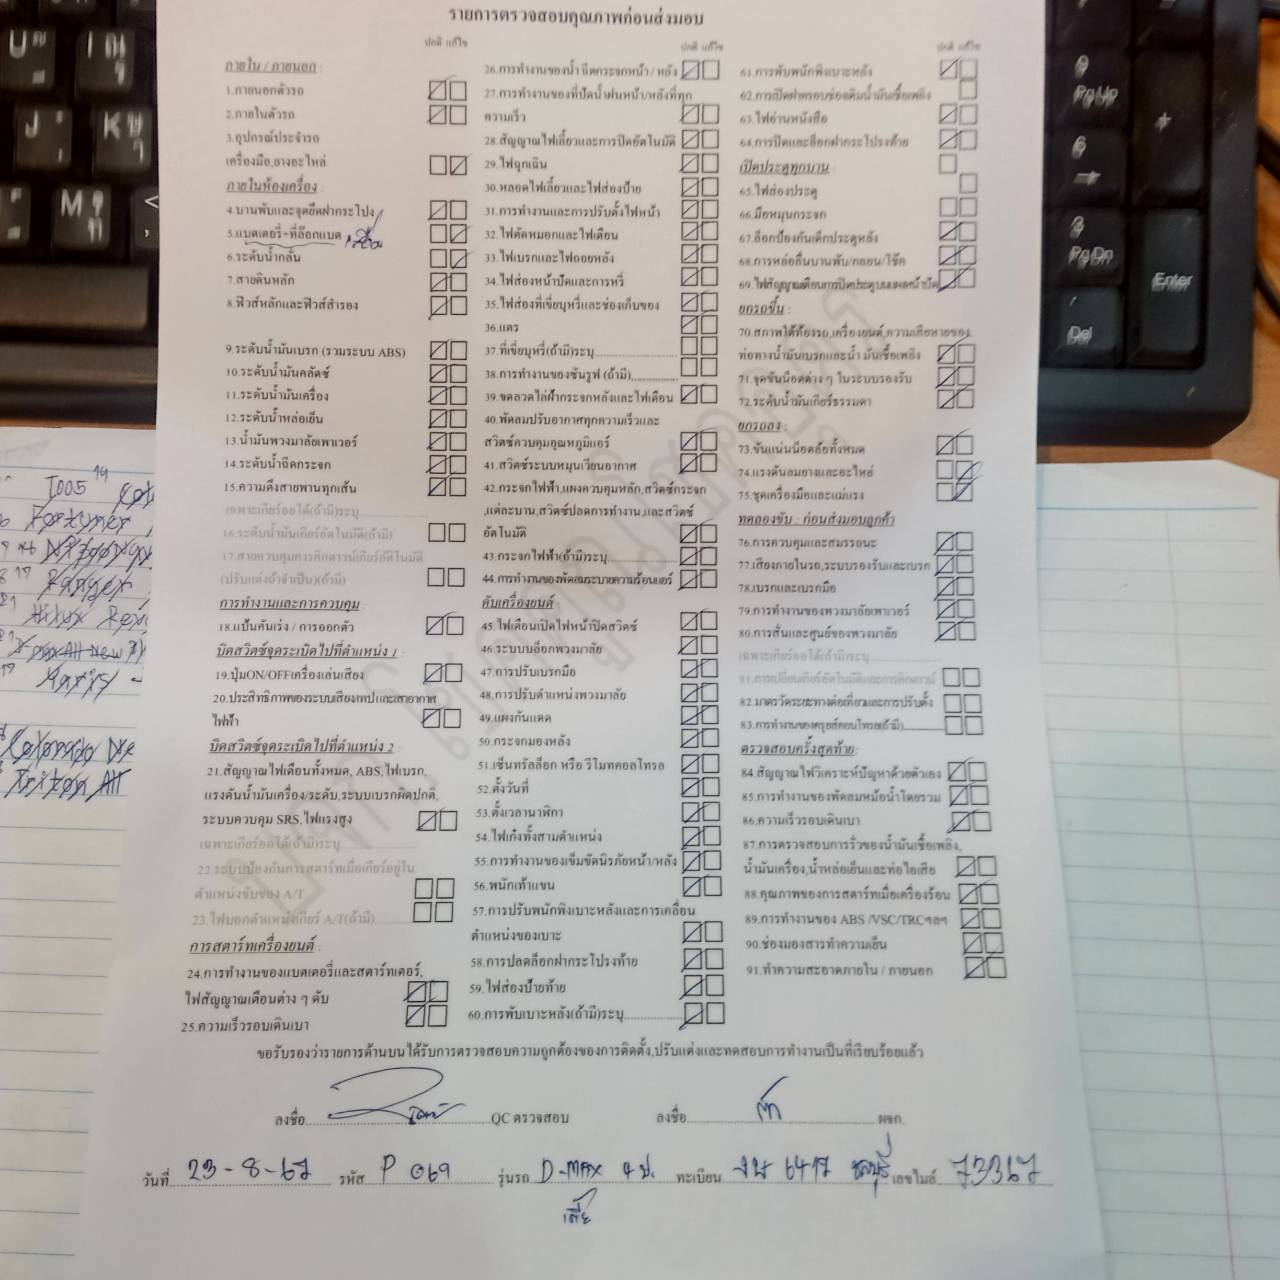 รายการตรวจสอบคุณภาพก่อนส่งมอบ
ปกติ แก้ไข
ภายใน / ภายนอก :
1.ภายนอกตัวรถ
2.ภายในตัวรถ
3.อุปกรณ์ประจำรถ
เครื่องมือ,ยางอะไหล่
ภายในห้องเครื่อง :
4.บานพับและจุดยึดฝากระโปรง
5.แบตเตอรี่+ที่ล๊อกแบต
6.ระดับน้ำกลั่น
7.สายดินหลัก
8.ฟิวส์หลักและฟิวส์สำรอง
9.ระดับน้ำมันเบรก (รวมระบบ ABS)
10.ระดับน้ำมันคลัตซ์
11.ระดับน้ำมันเครื่อง
12.ระดับน้ำหล่อเย็น
13.น้ำมันพวงมาลัยเพาเวอร์
14.ระดับน้ำฉีดกระจก
15.ความตึงสายพานทุกเส้น
เฉพาะเกียร์ออโต้(ถ้ามี)ระบุ
16.ระดับน้ำมันเกียร์อัตโนมัติ(ถ้ามี)
17.สายควบคุมการคิกดาวน์เกียร์อัติโนมัติ
(ปรับแต่งถ้าจำเป็น)(ถ้ามี)
การทำงานและการควบคุม :
18.แป้นคันเร่ง / การออกตัว
บิดสวิตซ์จุดระเบิดไปที่ตำแหน่ง 1 :
19.ปุ่มON/OFFเครื่องเล่นเสียง
20.ประสิทธิภาพของระบบเสียง,เทปและเสาอากาศ
ไฟฟ้า
บิดสวิตซ์จุดระเบิดไปที่ตำแหน่ง 2 :
21.สัญญาณไฟเตือนทั้งหมด, ABS,ไฟเบรก,
แรงดันน้ำมันเครื่อง/ระดับ,ระบบเบรกผิดปกติ,
ระบบควบคุม SRS,ไฟแรงสูง
เฉพาะเกียร์ออโต้(ถ้ามี)ระบุ
22.ระบบป้องกันการสตาร์ทเมื่อเกียร์อยู่ใน
ตำแหน่งขับของ A/T
23.ไฟบอกตำแหน่งเกียร์ A/T(ถ้ามี)
การสตาร์ทเครื่องยนต์ :
24.การทำงานของแบตเตอรี่และสตาร์ทเตอร์,
ไฟสัญญาณเตือนต่าง ๆ ดับ
25.ความเร็วรอบเดินเบา
ปกติ แก้ไข
26.การทำงานของน้ำ ฉีดกระจกหน้า / หลัง
27.การทำงานของที่ปัดน้ำฝนหน้า/หลังที่ทุก
ความเร็ว
28.สัญญาณไฟเลี้ยวและการปิดอัตโนมัติ
29.ไฟฉุกเฉิน
30.หลอดไฟเลี้ยวและไฟส่องป้าย
31.การทำงานและการปรับตั้งไฟหน้า
32.ไฟตัดหมอกและไฟเตือน
33.ไฟเบรกและไฟถอยหลัง
34.ไฟส่องหน้าปัดและการหรี่
35.ไฟส่องที่เขี่ยบุหรี่และช่องเก็บของ
36.แตร
37.ที่เขี่ยบุหรี่(ถ้ามี)ระบุ
38.การทำงานของซันรูฟ (ถ้ามี)
39.ขดลวดไล่ฝ้ากระจกหลังและไฟเตือน
40.พัดลมปรับอากาศทุกความเร็วและ
สวิตซ์ควบคุมอุณหภูมิแอร์
41.สวิตซ์ระบบหมุนเวียนอากาศ
42.กระจกไฟฟ้า,แผงควบคุมหลัก,สวิตซ์กระจก
,แต่ละบาน,สวิตซ์ปลดการทำงาน,และสวิตซ์
อัตโนมัติ
43.กระจกไฟฟ้า(ถ้ามี)ระบุ
44.การทำงานของพัดลมระบายความร้อนแอร์
ดับเครื่องยนต์ :
45.ไฟเตือนเปิดไฟหน้าปิดสวิตซ์
46.ระบบบล็อกพวงมาลัย
47.การปรับเบรกมือ
48.การปรับตำแหน่งพวงมาลัย
49.แผงกันแดด
50.กระจกมองหลัง
51.เซ็นทรัลล็อก หรือ รีโมทคอลโทรล
52.ตั้งวันที่
53.ตั้งเวลานาฬิกา
54.ไฟเก๋งทั้งสามตำแหน่ง
55.การทำงานของเข็มขัดนิรภัยหน้า/หลัง
56.พนักเท้าแขน
57.การปรับพนักพิงเบาะหลังและการเคลื่อน
ตำแหน่งของเบาะ
58.การปลดล็อกฝากระโปรงท้าย
59.ไฟส่องป้ายท้าย
60.การพับเบาะหลัง(ถ้ามี)ระบุ
ปกติ แก้ไข
61.การพับพนักพิงเบาะหลัง
62.การเปิดฝาครอบช่องเติมน้ำมันเชื้อเพลิง
63.ไฟอ่านหนังสือ
64.การปิดและล็อกฝากระโปรงท้าย
เปิดประตูทุกบาน :
65.ไฟส่องประตู
66.มือหมุนกระจก
67.ล็อกป้องกันเด็กประตูหลัง
68.การหล่อลื่นบานพับ/กลอน/โช๊ค
69.ไฟสัญญาณเตือนการปิดประตูบนแผงหน้าปัด
ยกรถขึ้น :
70.สภาพใต้ท้องรถ,เครื่องยนต์,ความเสียหายของ
ท่อทางน้ำมันเบรกและน้ำ มันเชื้อเพลิง
71.จุดขันน็อตต่าง ๆ ในระบบรองรับ
72.ระดับน้ำมันเกียร์ธรรมดา
ยกรถลง :
73.ขันแน่นน็อตล้อทั้งหมด
74.แรงดันลมยางและอะไหล่
75.ชุดเครื่องมือและแม่แรง
ทดลองขับ : ก่อนส่งมอบลูกค้า
76.การควบคุมและสมรรถนะ
77.เสียงภายในรถ,ระบบรองรับและเบรก
78.เบรกและเบรกมือ
79.การทำงานของพวงมาลัยเพาเวอร์
80.การสั่นและศูนย์ของพวงมาลัย
เฉพาะเกียร์ออโต้(ถ้ามี)ระบุ
81.การเปลี่ยนเกียร์อัตโนมัติและการคิกดาวน์
82.มาตรวัดระยะทางต่อเที่ยวและการปรับตั้ง
83.การทำงานของครุยส์คอนโทรล(ถ้ามี)
ตรวจสอบครั้งสุดท้าย :
84.สัญญาณไฟวิเคราะห์ปัญหาด้วยตัวเอง
85.การทำงานของพัดลมหม้อน้ำโดยรวม
86.ความเร็วรอบเดินเบา
87.การตรวจสอบการรั่วของน้ำมันเชื้อเพลิง,
น้ำมันเครื่อง,น้ำหล่อเย็นและท่อไอเสีย
88.คุณภาพของการสตาร์ทเมื่อเครื่องร้อน
89.การทำงานของ ABS /VSC/TRCฯลฯ
90.ช่องมองสารทำความเย็น
91.ทำความสะอาดภายใน / ภายนอก
ขอรับรองว่ารายการด้านบนได้รับการตรวจสอบความถูกต้องของการติดตั้ง,ปรับแต่งและทดสอบการทำงานเป็นที่เรียบร้อยแล้ว
ลงชื่อ QC ตรวจสอบ ลงชื่อ ผจก.
วันที่ 23-8-67 รหัส P 069 รุ่นรถ D-MAX 4 ป. ทะเบียน 6417 ชลบุรี เลขไมล์ 73367
เตี้ย